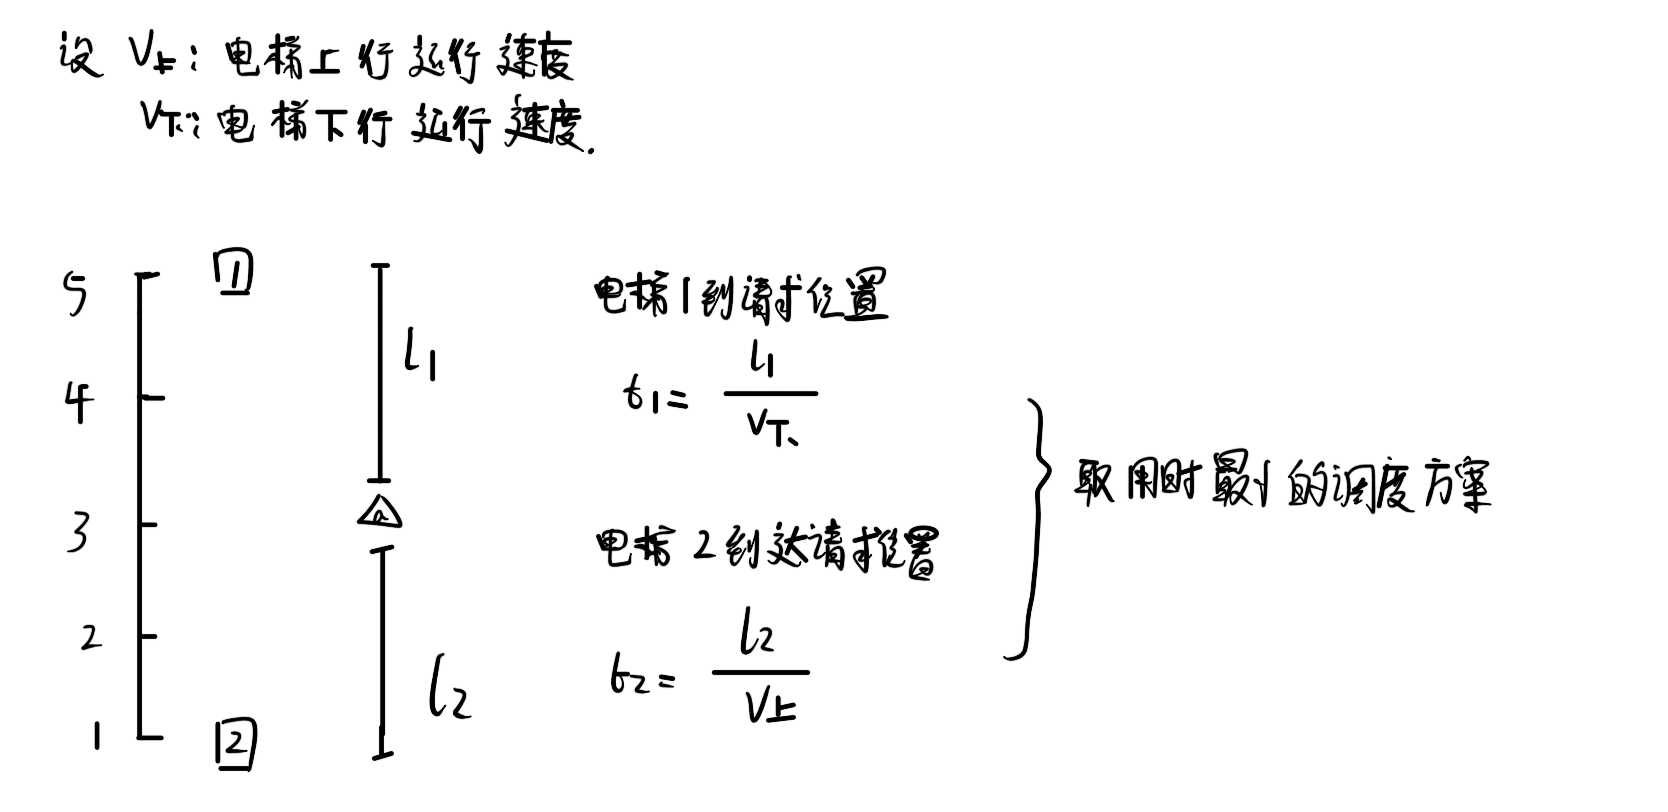 设 V上: 电梯上行运行速度
V下: 电梯下行运行速度.
5
1
l1
电梯1到请求位置
t1 = l1 / V下
4
取用时最少的调度方案
a
3
电梯2到达请求位置
2
t2 = l2 / V上
l2
1
2